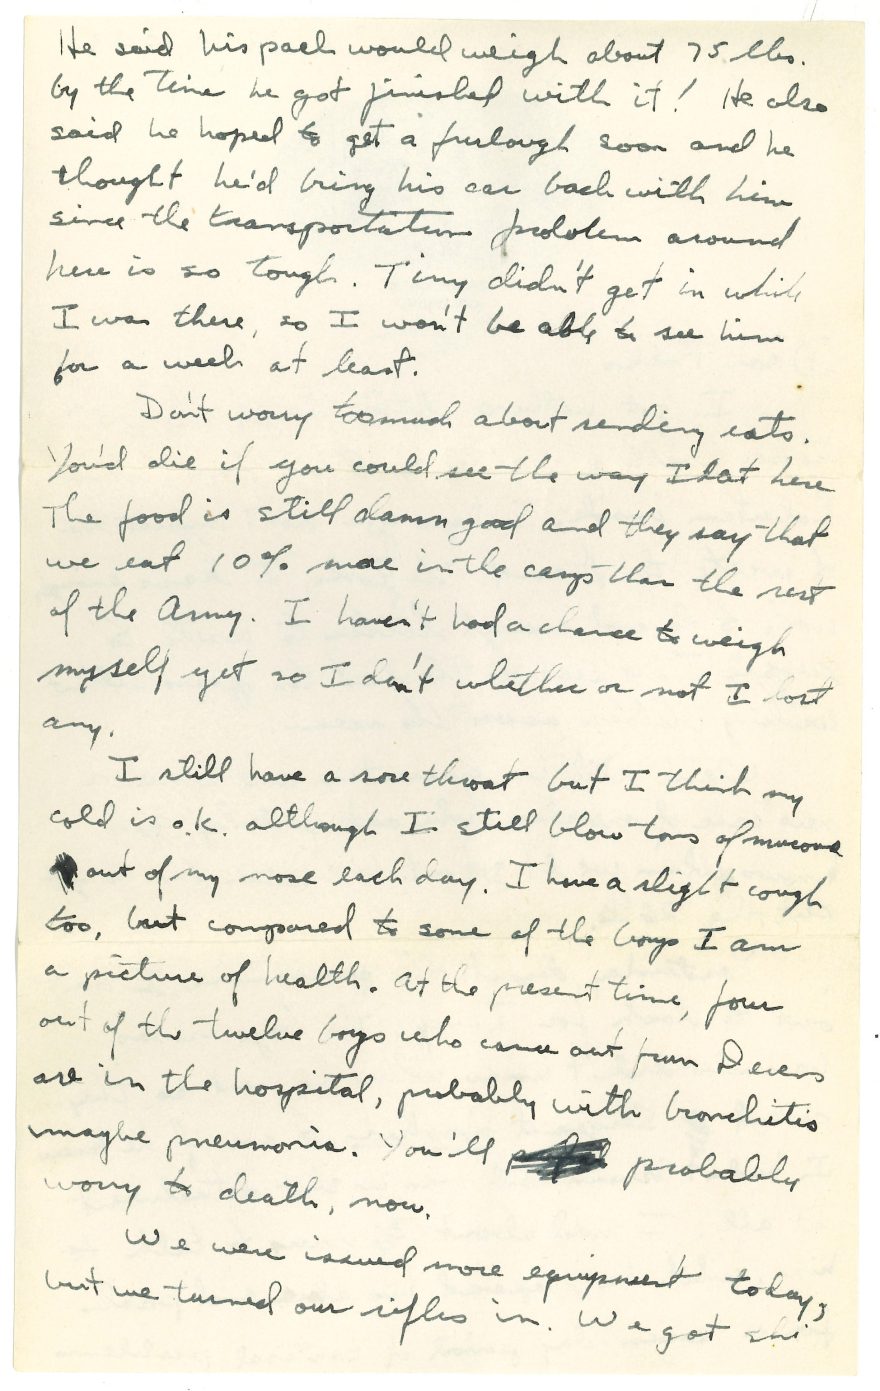 He said his pack would weigh about 75 lbs.
by the time he got finished with it! He also
said he hoped to get a furlough soon and he
thought he'd bring his car back with him
since the transportation problem around
here is so tough. Tiny didn't get in while
I was there, so I won't be able to see him
for a week at least.
Don't worry too much about sending eats.
You'd die if you could see the way I eat here
The food is still damn good and they say that
we eat 10% more in the camps than the rest
of the Army. I haven't had a chance to weigh
myself yet so I don't whether or not I lost
any.
I still have a sore throat but I think my
cold is o.k. although I still blow tons of
out of my nose each day. I have a slight cough
too, but compared to some of the boys I am
a picture of health. At the present time, four
out of the twelve boys who came out from Devens
are in the hospital, probably with bronchitis
maybe pneumonia. You'll probably
worry to death, now.
We were issued more equipment today,
but we turned our rifles in. We got ski